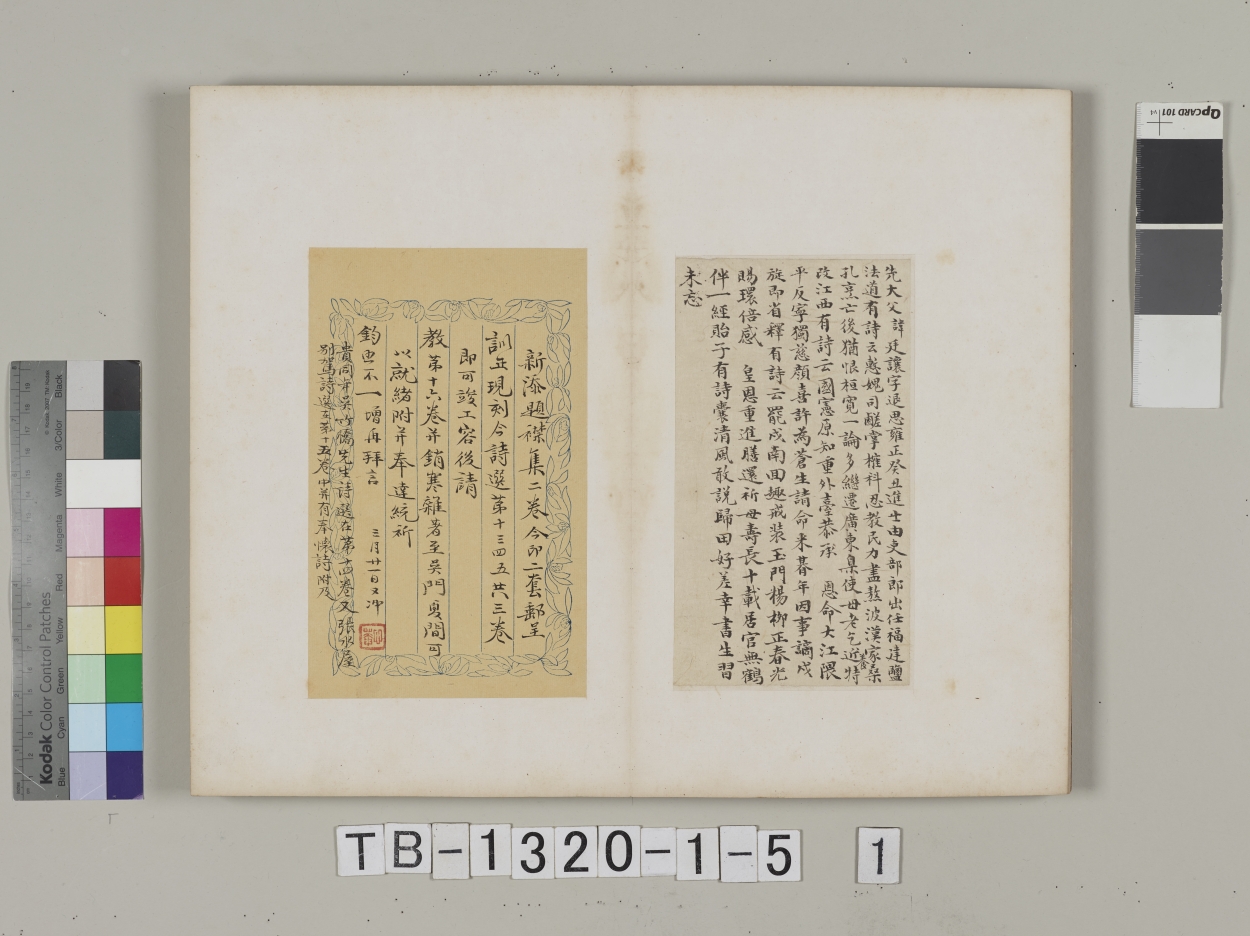 先大父諱廷讓字退思雍正癸丑進士由吏部郎出任福建鹽
法道有詩云慙媿司醝掌榷科忍教民力盡熬波漢家桑
孔烹亡後猶恨桓寬一論多繼遷廣東臬使母老乞近特
改江西有詩云國憲原知重外臺恭承 恩命大江隈
平反寧獨慈顏喜許為蒼生請命来暮年因事謫戍
旋即省釋有詩云罷戍南回趣戒装玉門楊柳正春光
賜環倍感 皇恩重進膳還祈母壽長十載居官無鶴
伴一經貽子有詩囊清風敢説歸田好差幸書生習
未忘
新添題襟集二卷今印二套郵呈
訓正現刻今詩選第十三四五共三卷
即可竣工容後請
教第十六卷并銷寒雜著至吳門夏間可
以就緒附并奉達統祈
鈞電不一增再拜言
三月廿一日又冲
貴同年吳竹橋先生詩選在第十四卷又張水屋
別駕詩選在第十五卷中并有奉懷詩附及
TB-1320-1-5 1
QPCARD 101 v1
Kodak Color Control Patches
Blue Cyan Green Yellow Red Magenta White 3/Color Black